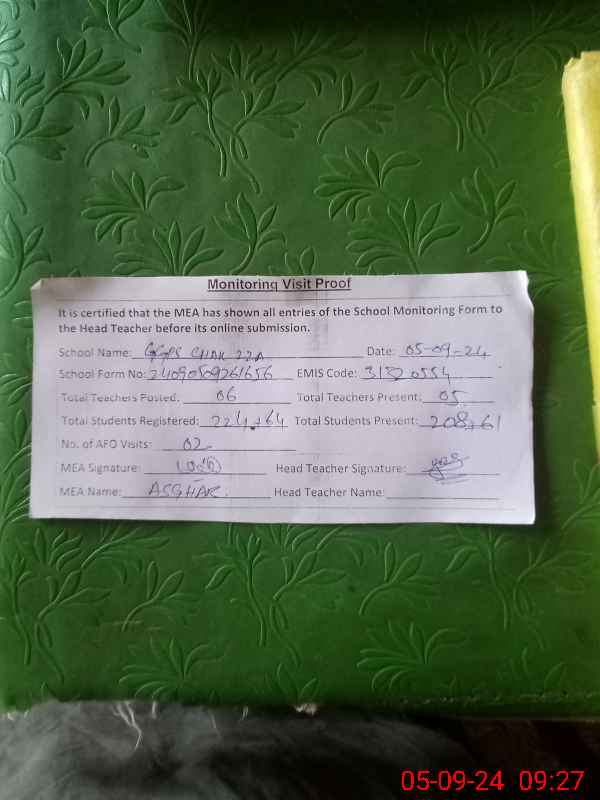 Monitoring Visit Proof
It is certified that the MEA has shown all entries of the School Monitoring Form to
the Head Teacher before its online submission.
School Name: CHAK 22A Date: 05-09-24
School Form No: 24090509261656 EMIS Code: 31320554
Total Teachers Posted: 06 Total Teachers Present: 05
Total Students Registered: 224+64 Total Students Present: 208+61
No. of AFO Visits: 02
MEA Signature: Head Teacher Signature:
MEA Name: ASGHAR. Head Teacher Name:
05-09-24 09:27